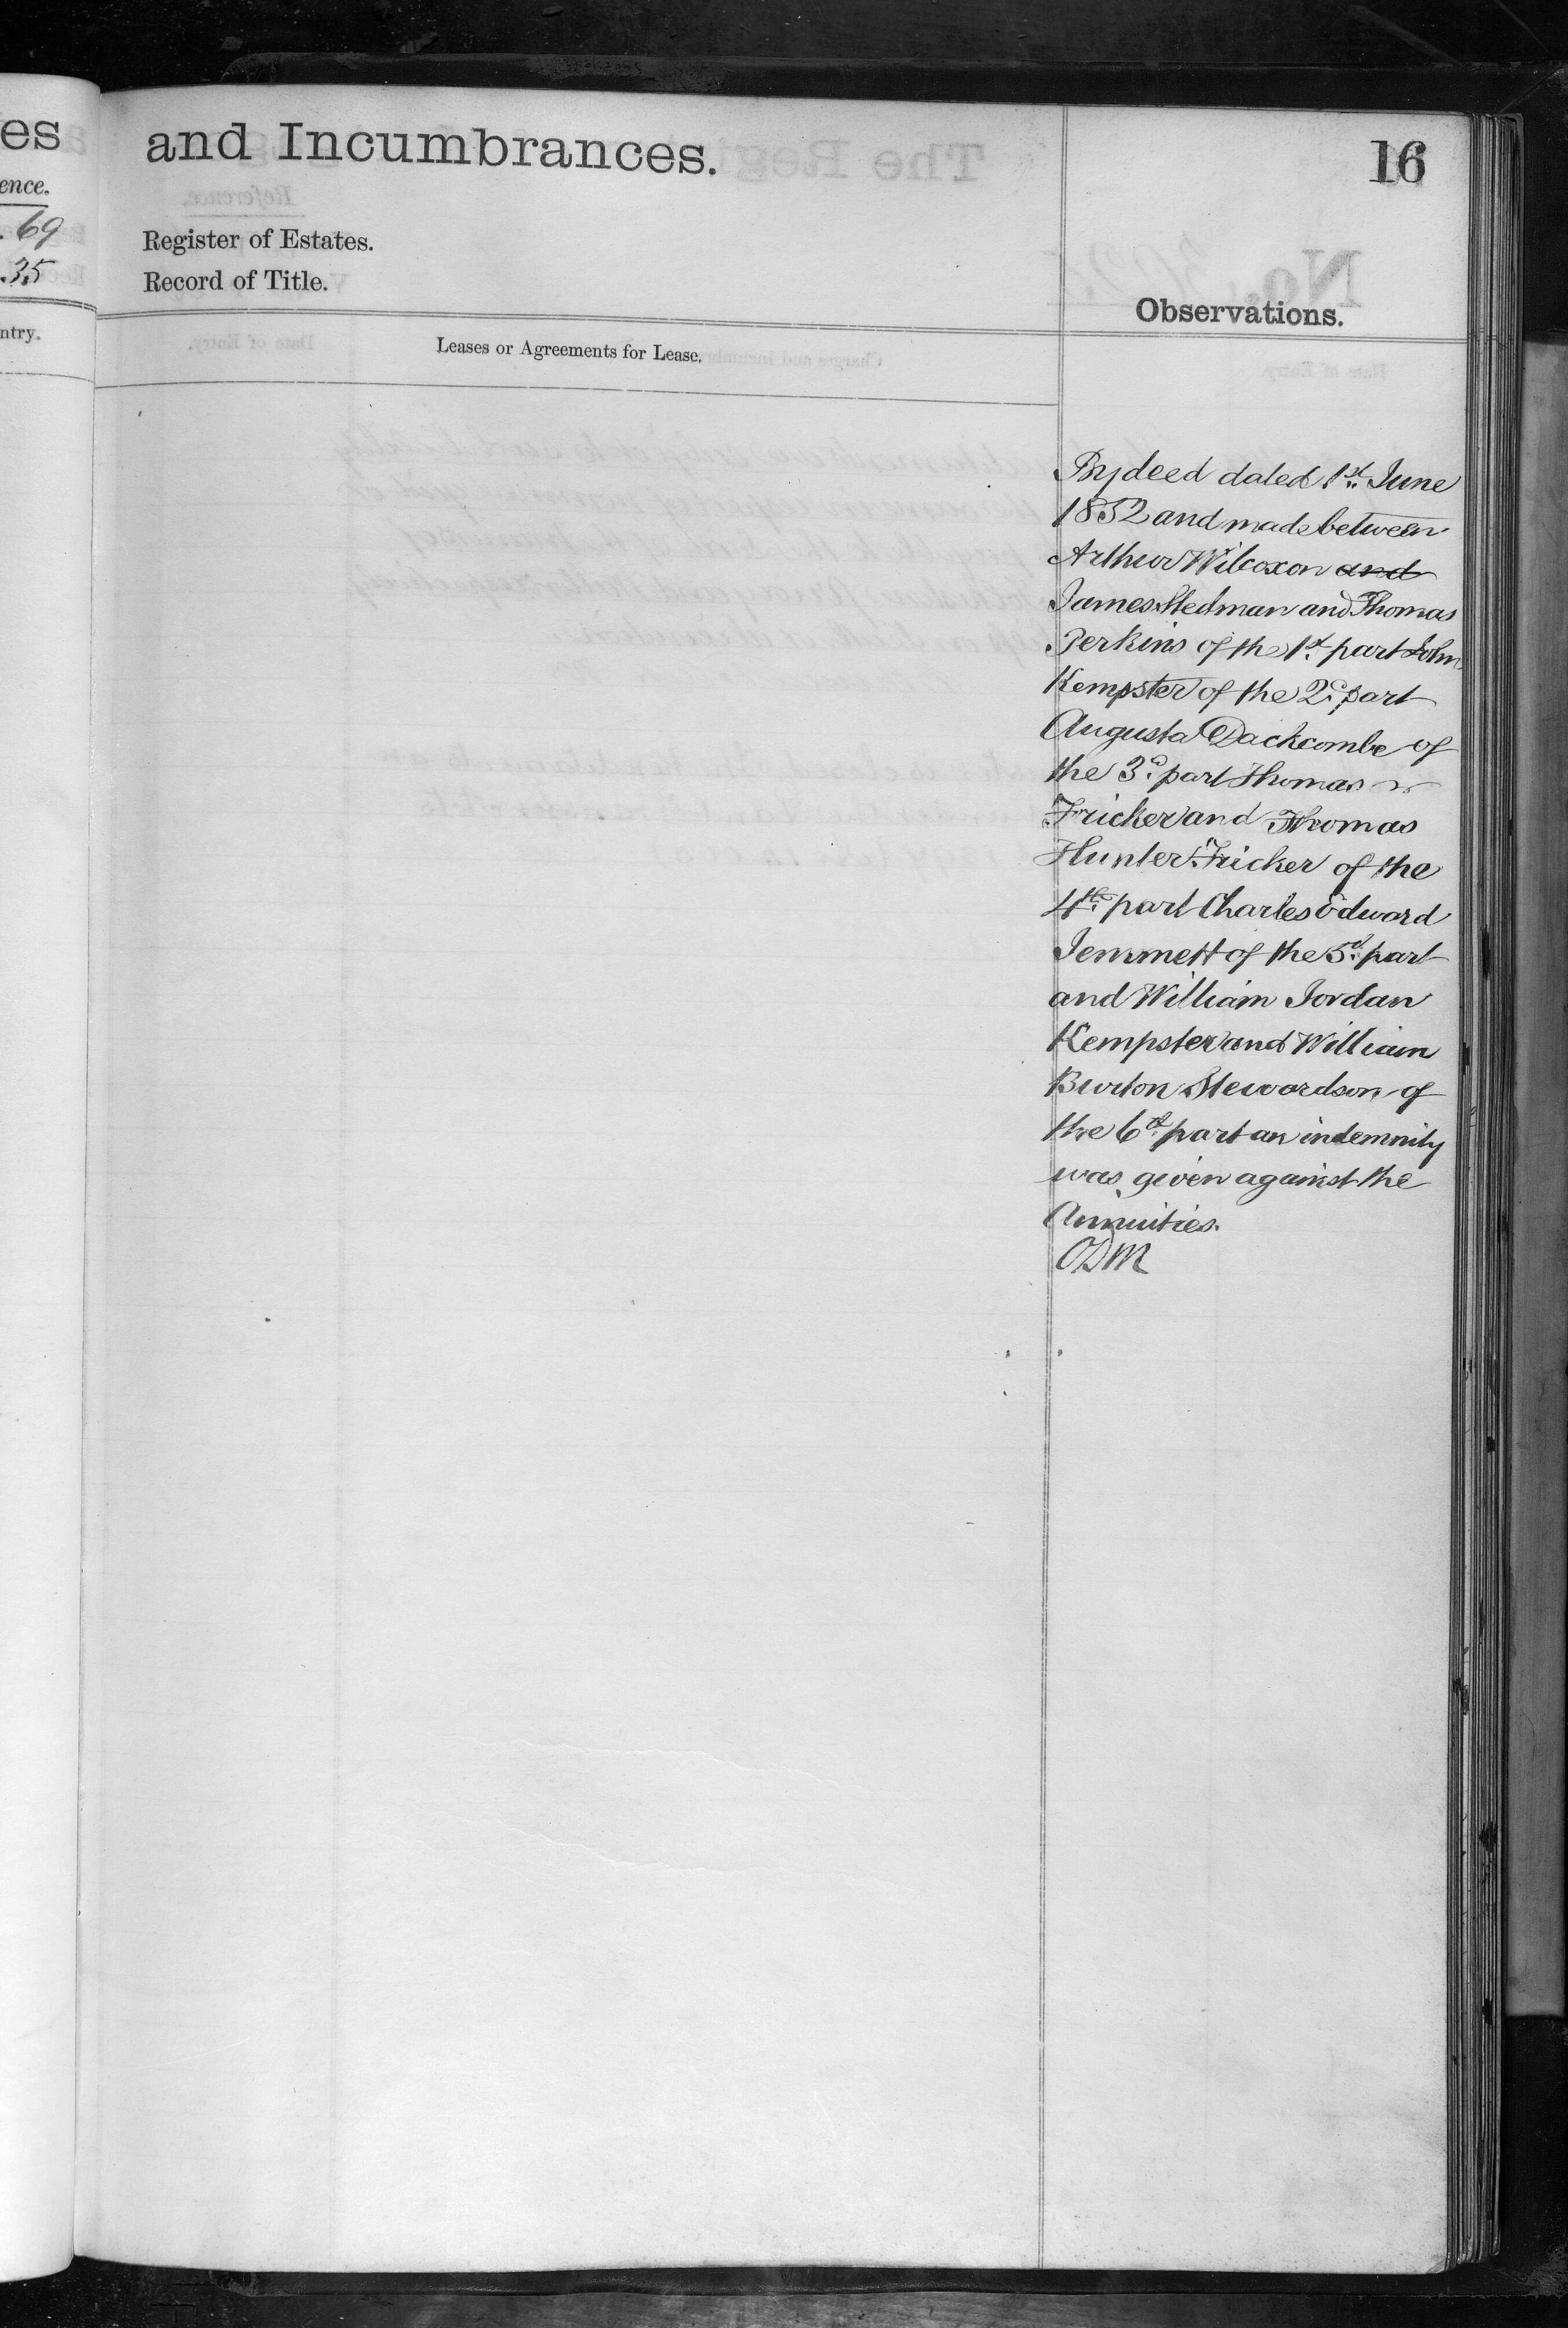 es
ence.
. 69
.35
ntry.
and Incumbrances.
16
Register of Estates.
Record of Title.
Observations.
Leases or Agreements for Lease.
By deed dated 1st. June
1852 and made between
Arthur Wilcoxon and
James Stedman and Thomas
Perkins of the 1st. part John
Kempster of the 2d. part
Augusta Dackcombe of
the 3d. part Thomas
Fricker and Thomas
Hunter Fricker of the
4th. part Charles Edward
Jemmett of the 5th. part
and William Jordan
Kempster and William
Burton Stewardson of
the 6th. part an indemnity
was given against the
Annuities.
ODM